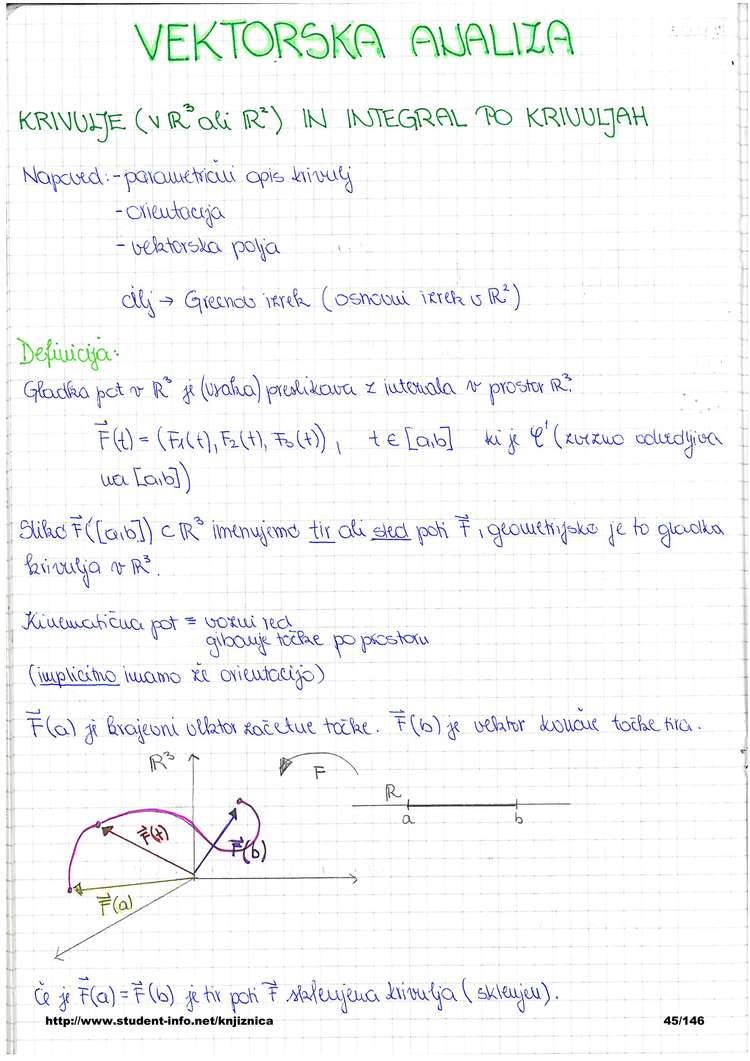 VEKTORSKA ANALIZA
KRIVULJE (V ℝ³ ali ℝ²) IN INTEGRAL PO KRIVULJAH
Napoved: - parametrični opis krivulj
- orientacija
- vektorska polja
cilj → Greenov izrek (osnovni izrek v ℝ²)
Definicija:
Gladka pot v ℝ³ je (vsaka) preslikava z intervala v prostor ℝ³.
F⃗(t) = (F₁(t), F₂(t), F₃(t)), t ∈ [a,b] ki je C¹ (zvezno odvedljiva
na [a,b])
Sliko F⃗([a,b]) ⊂ ℝ³ imenujemo tir ali sled poti F⃗, geometrijsko je to gladka
krivulja v ℝ³.
Kinematična pot = vozni red
gibanje točke po prostoru
(implicitno imamo že orientacijo)
F⃗(a) je krajevni vektor začetne točke. F⃗(b) je vektor končne točke tira.
ℝ³
F
ℝ
a b
F⃗(t)
F⃗(b)
F⃗(a)
Če je F⃗(a) = F⃗(b) je tir poti F⃗ sklenjena krivulja (sklenjen).
http://www.student-info.net/knjiznica 45/146